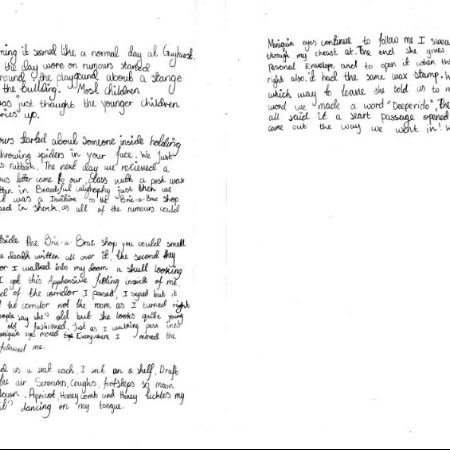 ning it seemed like a normal day at
the day wore on rumours started
round the playground about a stange
the building. Most children
was just thought the younger children
ories up.
ours started about someone inside holding
throwing spiders in your face. We just
s rubbish. The next day we retrieved a
us letter came to our class with a posh wax
tten in Beautiful calligraphy just then we
it was a to the Bric-a-Brac shop
ed in shock, as all of the rumours could
tside the Bric-a-Brac shop you could smell
e death written all over it, the second they
or I walked into my doom a skull looking
I got this Apprehensive feeling insick of me
d of the corridor I paused, I but it
the corridor not the room as I turned right
eople say she's old but she looks quite young
old fashioned. Just as I walking pass
eyes moved Everywhere I moved the
followed me.
us a seat each, I sat on a shelf, Draft
the air Screams, Coughs, footsteps
down, Apricot, Honey comb and Honey tickles my
dancing on my tongue.
Manequin eyes continue to follow me I swear
through my cheast at. The end she gives
Personal Envelope and to open it when th
right also. it had the same wax stamp. W
which way to leave she told us to m
word we made a word "The
all said it a scart passage opened
came out the way we went in! W